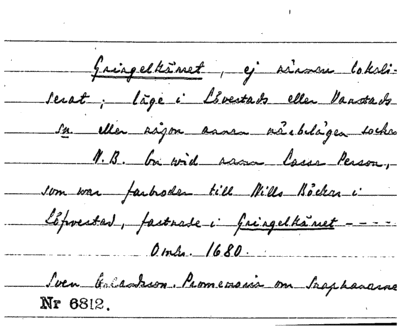 Gringelkärret, ej närmare lokali-
serat; läge i Lövestads eller Vanstads
sn eller någon annan närbelägen socken
N.B. En vid namn Lasse Person,
som war farbroder till Nills Böcker i
Löfvestad, fastnade i Gringelkärret ----
Omkr. 1680.
Sven Erlandsson. Promemoria om Snapphanarne
Nr 6812.